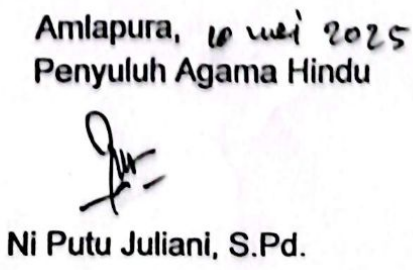 Amlapura, 10 mei 2025
Penyuluh Agama Hindu
Ni Putu Juliani, S.Pd.